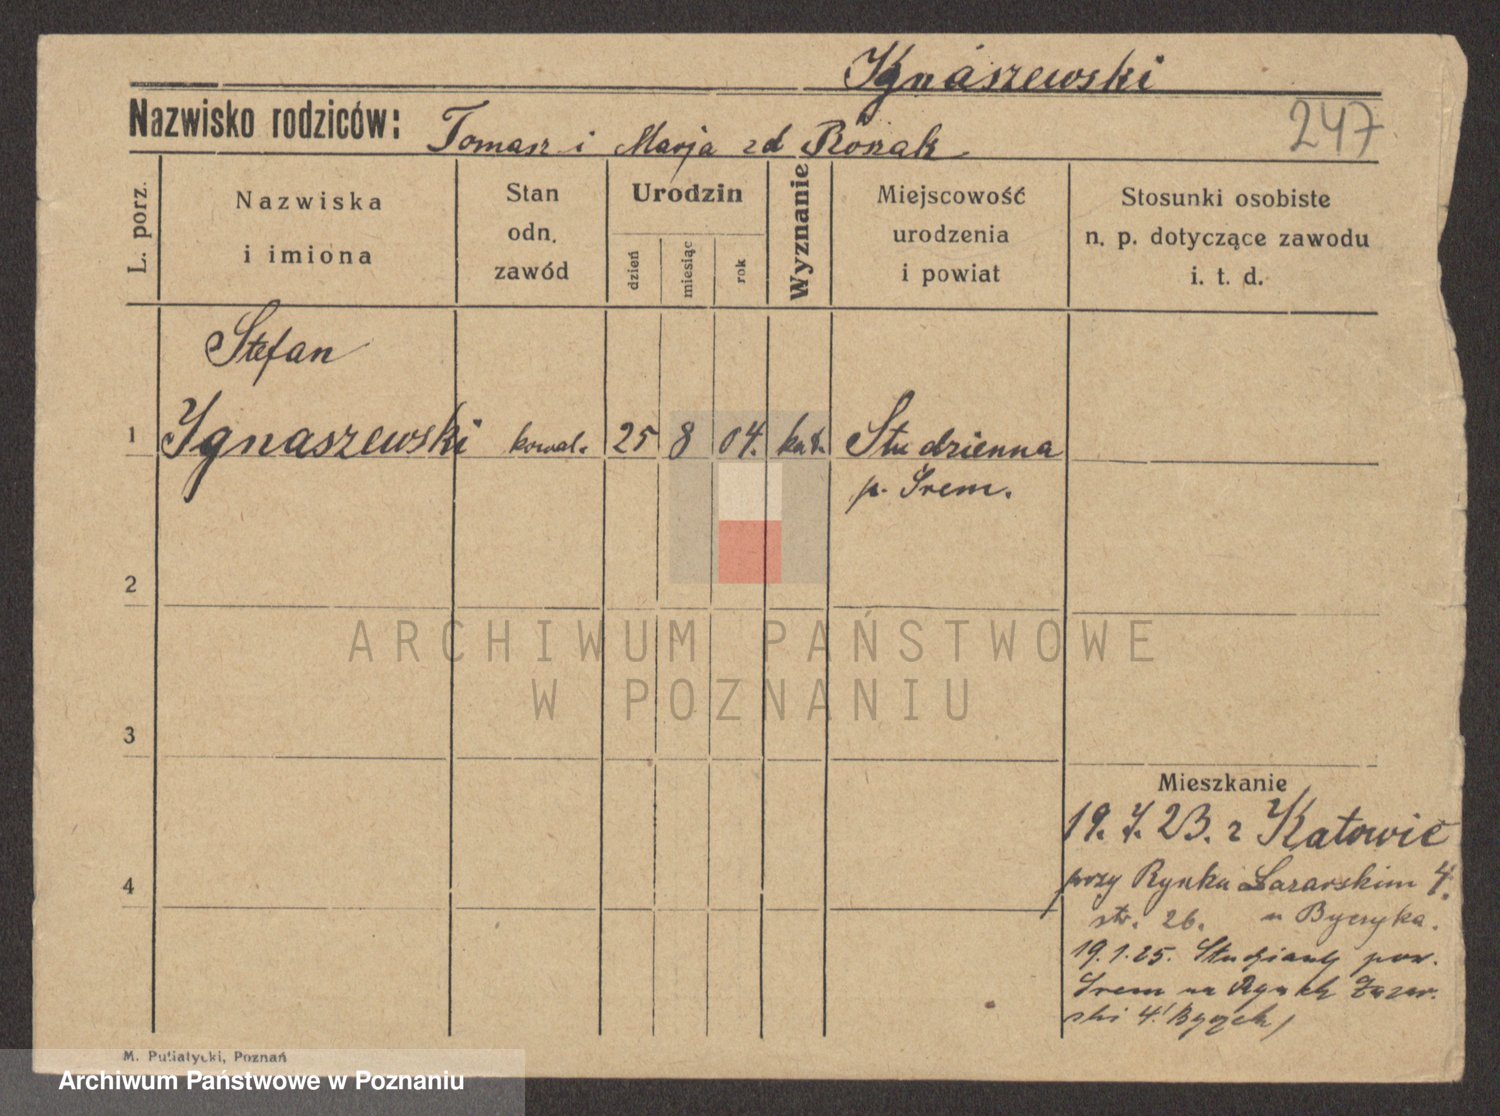 Ignaszewski
Nazwisko rodziców: Tomasz i Marja zd Rozak
247
L. porz.
Nazwiska
i imiona
Stan
odn.
zawód
Urodzin
dzień
miesiąc
rok
Wyznanie
Miejscowość
urodzenia
i powiat
Stosunki osobiste
n. p. dotyczące zawodu
i. t. d.
Stefan
1 Ignaszewski kowal. 25 8 04. kat. Studzienna
p. Śrem.
2
ARCHIWUM PAŃSTWOWE
W POZNANIU
3
Mieszkanie
19. 7. 23. z Katowic
4 przy Rynku Łazarskim 4.
str. 26. u Byczyka.
19.1.25. pow.
Śrem na Rynek Łazar.
ski 4.
M. Putiatycki, Poznań
Archiwum Państwowe w Poznaniu